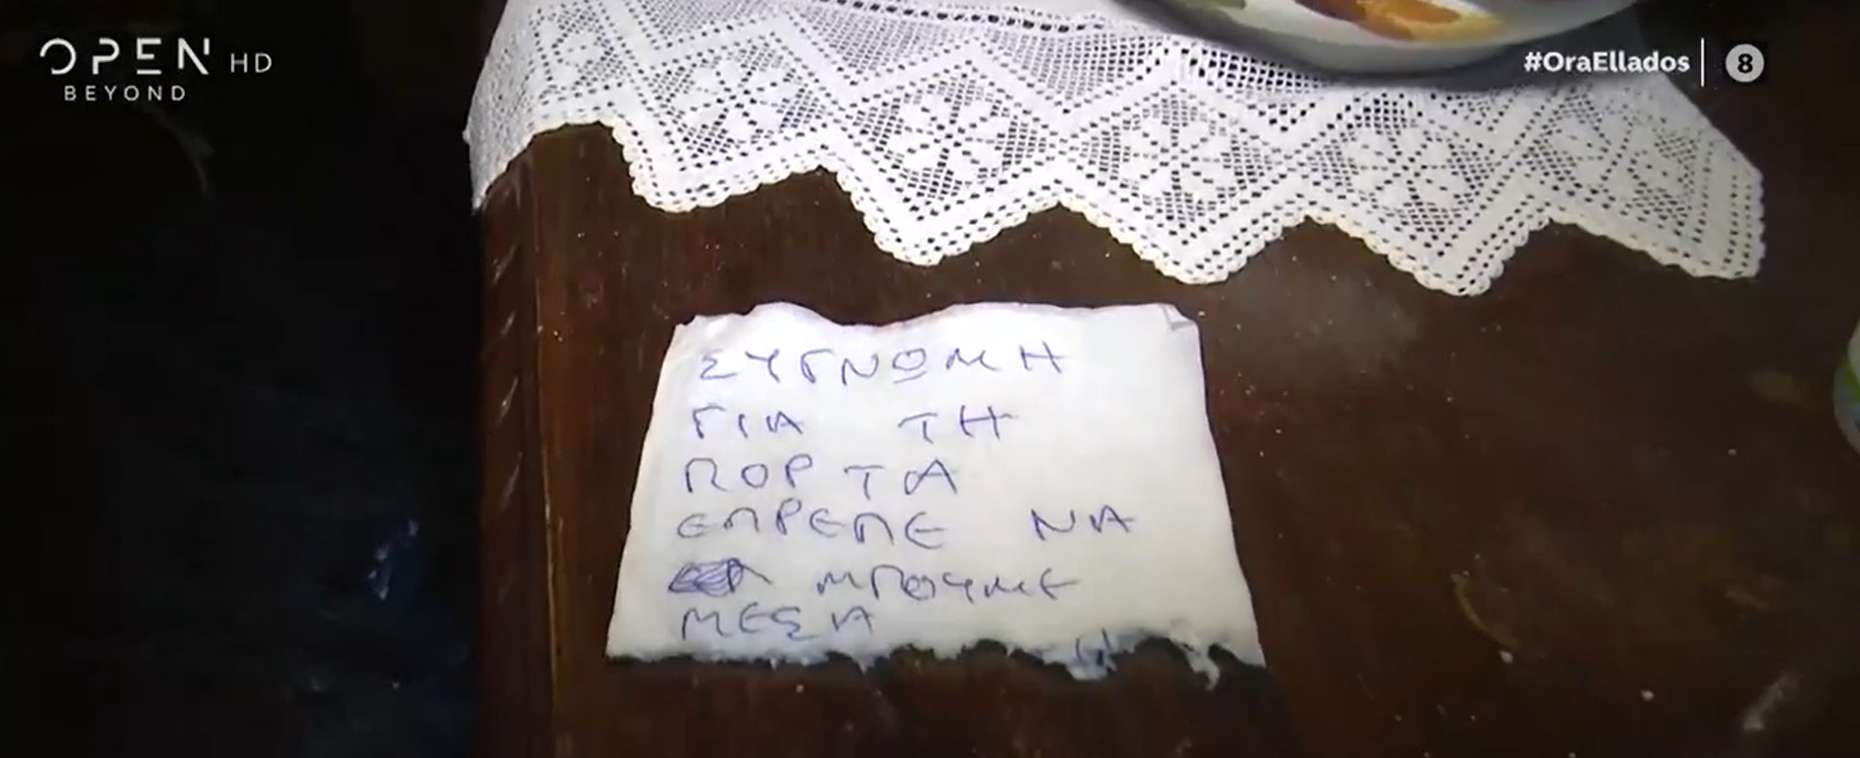 OPEN HD
BEYOND
#OraEllados | 8
ΣΥΓΝΩΜΗ
ΓΙΑ ΤΗ
ΠΟΡΤΑ
ΕΠΡΕΠΕ ΝΑ
ΜΠΟΥΜΕ
ΜΕΣΑ